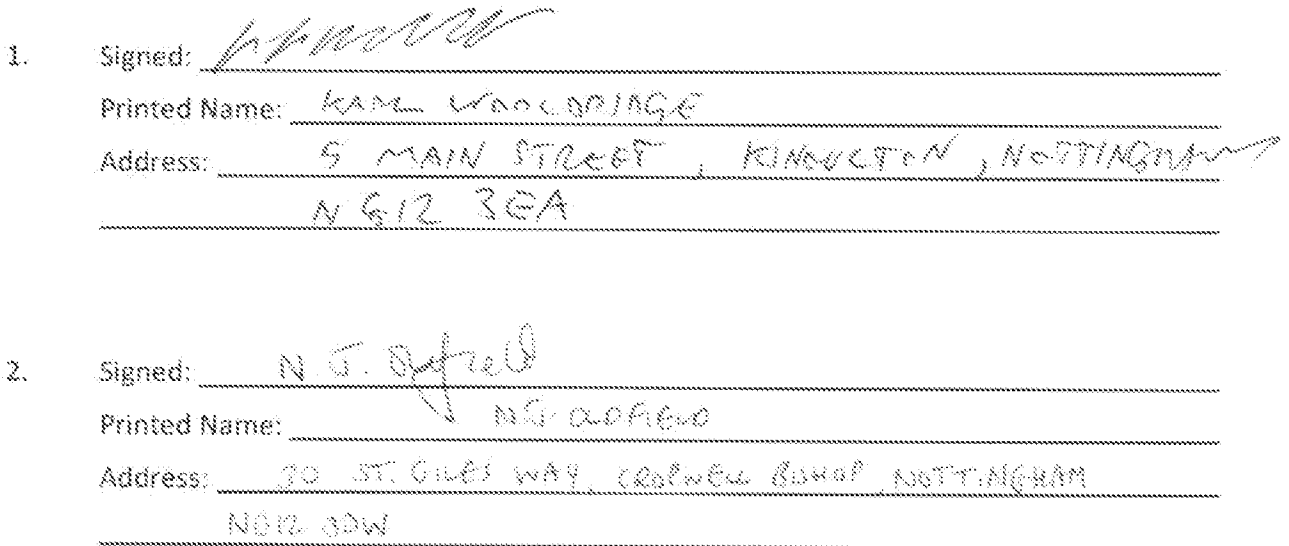 1. Signed:
Printed Name: KARL WOOLDRIDGE
Address: 5 MAIN STREET, KINOULTON, NOTTINGHAM
NG12 3EA
2. Signed: N.J. Oldfield
Printed Name: NJ OLDFIELD
Address: 30 ST. GILES WAY, CROPWELL BISHOP, NOTTINGHAM
NG12 3DW